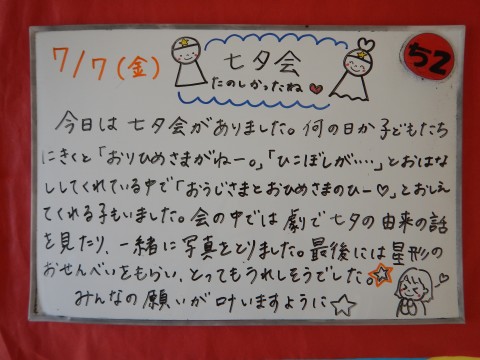 7/7(金)
七夕会
たのしかったね♥
ち2
今日は七夕会がありました。何の日か子どもたち
にきくと「おりひめさまがねー。」「ひこぼしが‥‥」とおはな
ししてくれている中で「おうじさまとおひめさまのひー♡」とおしえ
てくれる子もいました。会の中では劇で七夕の由来の話
を見たり、一緒に写真をとりました。最後には星形の
おせんべいをもらい、とってもうれしそうでした。☆
みんなの願いが叶いますように☆